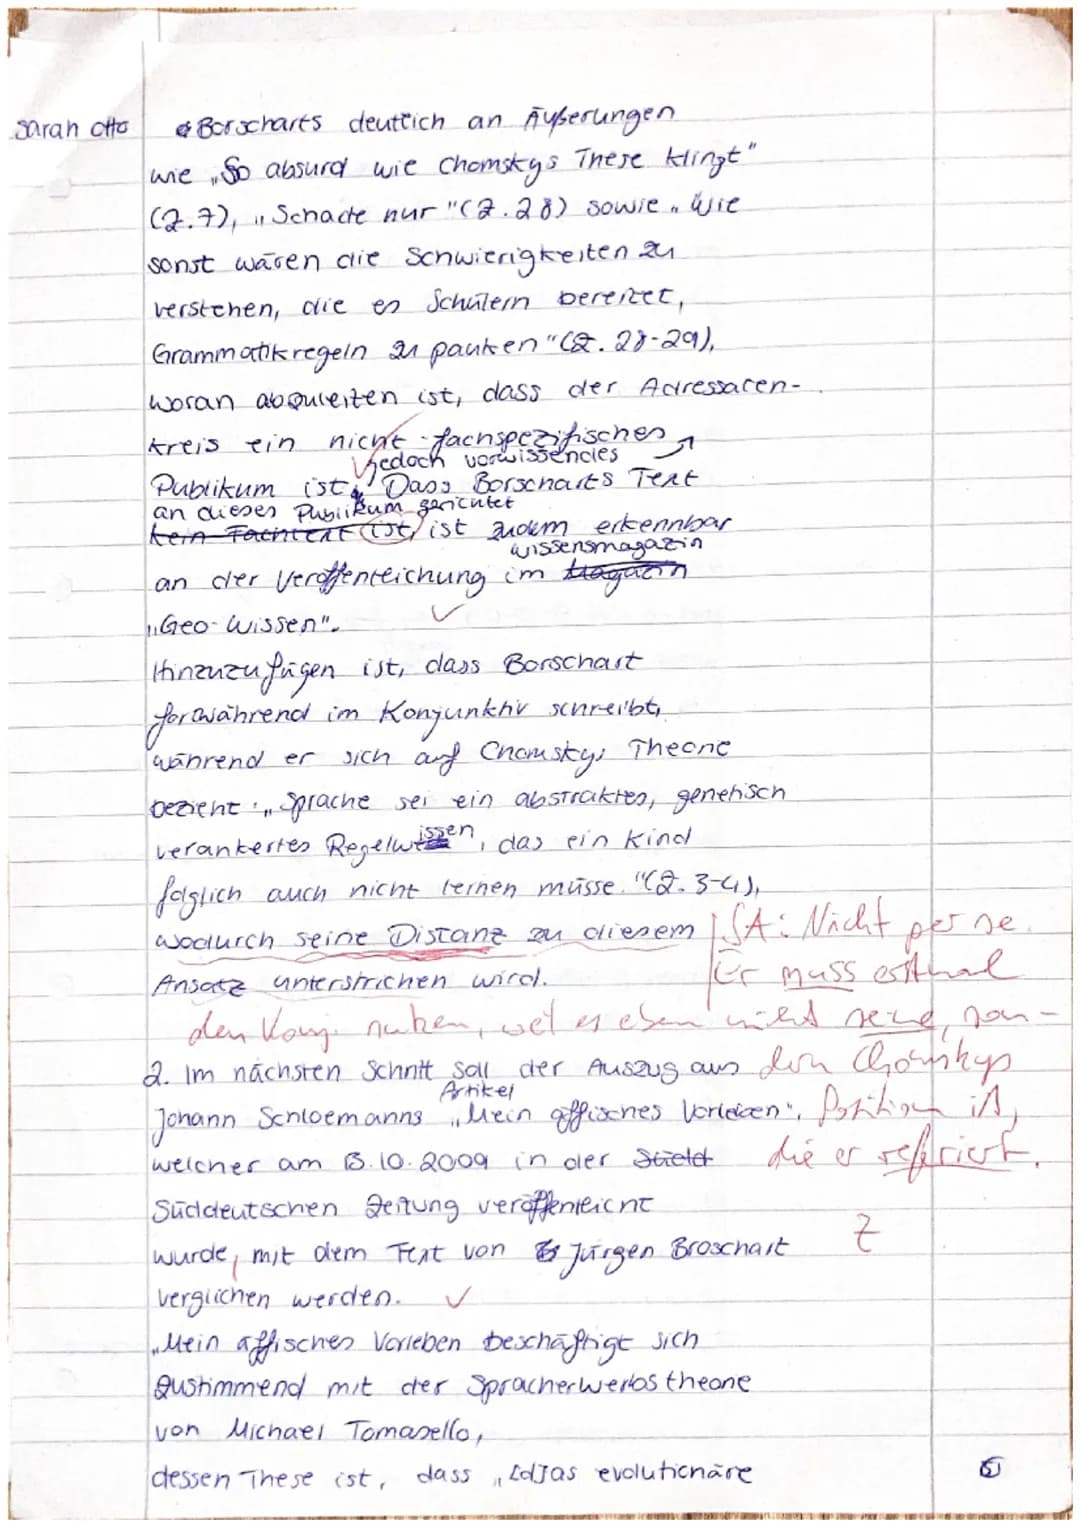 Sarah Otto
Borscharts deutlich an Äußerungen
wie „So absurd wie Chomskys These klingt"
(Z.7), „Schade nur" (Z.28) sowie „Wie
sonst wären die Schwierigkeiten zu
verstehen, die es Schülern bereitet,
Grammatikregeln zu pauken" (Z. 28-29),
woran abzuleiten ist, dass der Adressaten-
kreis ein nicht-fachspezifisches
jedoch vorwissendes
Publikum ist. Dass Borscharts Text
an dieses Publikum gerichtet
kein Fachtext ist, ist zudem erkennbar
Wissensmagazin
an der Veröffentlichung im Magazin
„Geo-Wissen".
Hinzuzufügen ist, dass Borschart
fortwährend im Konjunktiv schreibt,
während er sich auf Chomskys Theorie
bezieht: „Sprache sei ein abstraktes, genetisch
verankertes Regelwissen, das ein Kind
folglich auch nicht lernen müsse." (Z. 3-4),
wodurch seine Distanz zu diesem
SA: Nicht per se.
Ansatz unterstrichen wird.
Er muss erstmal
den Konj. nutzen, weil es eben nicht seine, son-
2. Im nächsten Schritt soll der Auszug aus
dern Chomskys
Artikel
Johann Schloemanns „Mein äffisches Vorleben",
Position ist,
welcher am 13.10.2009 in der
die er referiert.
Süddeutschen Zeitung veröffentlicht
wurde, mit dem Text von Jürgen Broschart
Z
verglichen werden.
„Mein äffisches Vorleben beschäftigt sich
zustimmend mit der Spracherwerbstheorie
von Michael Tomasello,
dessen These ist, dass „[d]as evolutionäre